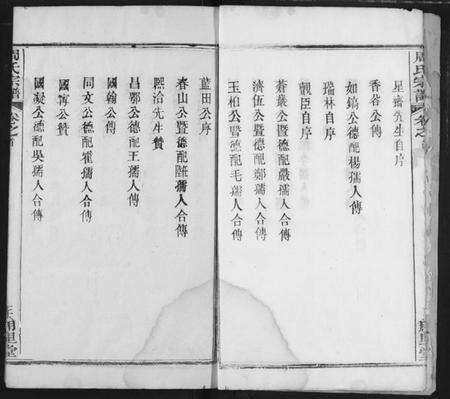 周氏宗譜 卷之首
星齋先生自序
香谷公傳
如鎬公德配楊孺人合傳
瑞林自序
觀臣自序
蒼嚴公暨德配嚴孺人合傳
濟伍公暨德配鄭孺人合傳
玉柏公暨德配毛孺人合傳
藍田公序
春山公暨德配陸孺人合傳
熙浩先生贊
昌鄂公德配王孺人傳
國翰公傳
同文公德配霍孺人合傳
國寶公贊
國凝公德配吳孺人合傳
周氏宗譜 卷之首